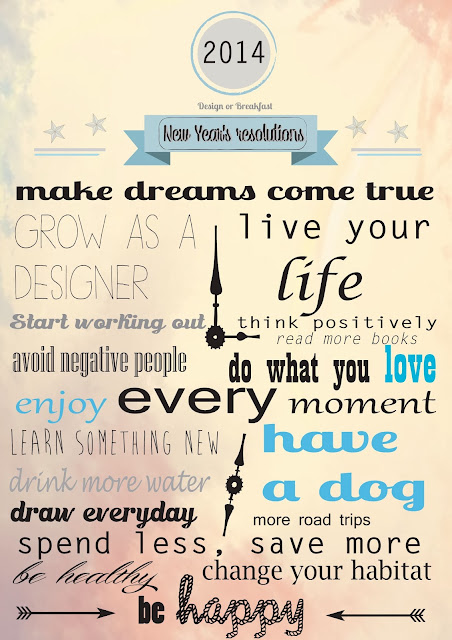 2014
Design or Breakfast
New Year's resolutions
make dreams come true
GROW AS A
DESIGNER
live your
life
Start working out
think positively
read more books
avoid negative people
do what you love
enjoy every moment
LEARN SOMETHING NEW
have
a dog
drink more water
draw everyday
more road trips
spend less, save more
be healthy
change your habitat
be happy